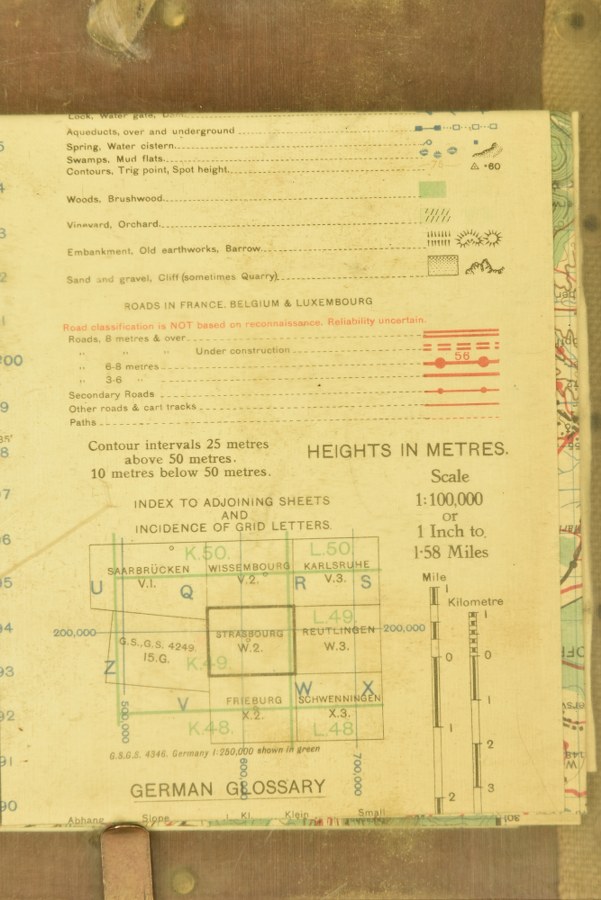 Lock, Water gate,
Aqueducts, over and underground
Spring, Water cistern
Swamps, Mud flats
Contours, Trig point, Spot height
75
•60
Woods, Brushwood
Vineyard, Orchard
Embankment, Old earthworks, Barrow
Sand and gravel, Cliff (sometimes Quarry)
ROADS IN FRANCE, BELGIUM & LUXEMBOURG
Road classification is NOT based on reconnaissance. Reliability uncertain.
Roads, 8 metres & over
„ „ Under construction
56
„ 6-8 metres
„ 3-6 „
Secondary Roads
Other roads & cart tracks
Paths
Contour intervals 25 metres
above 50 metres.
10 metres below 50 metres.
HEIGHTS IN METRES.
Scale
1:100,000
or
1 Inch to
1·58 Miles
INDEX TO ADJOINING SHEETS
AND
INCIDENCE OF GRID LETTERS.
K.50. L.50.
SAARBRÜCKEN WISSEMBOURG KARLSRUHE
V.1. V.2. V.3.
U Q R S
L.49
200,000 STRASBOURG REUTLINGEN 200,000
W.2. W.3.
G.S.G.S. 4249.
15.G.
K.49.
Z V W X
FRIEBURG SCHWENNINGEN
X.2. X.3.
K.48. L.48.
500,000
600,000
700,000
G.S.G.S. 4346. Germany 1:250,000 shown in green
Mile
Kilometre
1
1
0
0
1
1
2
2
3
GERMAN GLOSSARY
Abhang Slope Kl. Klein Small
5
4
3
2
1
00
9
35'
8
7
6
95
94
93
92
91
90